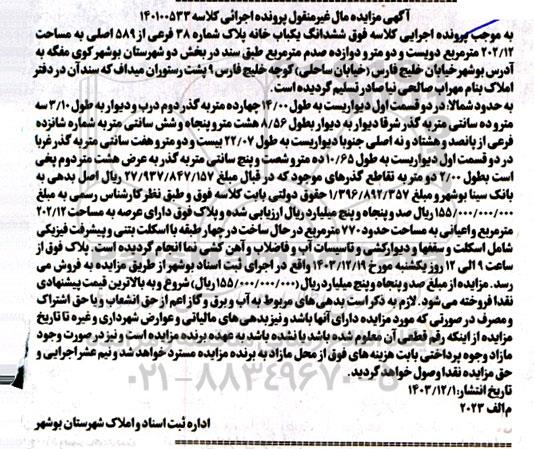 آگهی مزایده مال غیرمنقول پرونده اجرائی کلاسه ۱۴۰۱۰۰۵۳۳
به موجب پرونده اجرایی کلاسه فوق ششدانگ یکباب خانه پلاک شماره ۳۸ فرعی از ۵۸۹ اصلی به مساحت
۲۰۲/۱۲ مترمربع دویست و دو متر و دوازده صدم مترمربع طبق سند در بخش دو شهرستان بوشهر کوی مفگه به
آدرس بوشهر خیابان خلیج فارس (خیابان ساحلی) کوچه خلیج فارس ۹ پشت رستوران میداف که سند آن در دفتر
املاک بنام مهراب صالحی نیا صادر تسلیم گردیده است.
به حدود شمالا: در دو قسمت اول دیواریست به طول ۱۴/۰۰ چهارده متر به گذر دوم درب و دیوار به طول ۳/۱۰ سه
متر و ده سانتی متر به گذر شرقا دیوار به دیوار بطول ۸/۵۶ هشت متر و پنجاه و شش سانتی متر به شماره شانزده
فرعی از پانصد و هشتاد و نه اصلی جنوبا دیواریست به طول ۲۲/۰۷ بیست و دو متر و هفت سانتی متر به گذر غربا
در دو قسمت اول دیواریست به طول ۱۰/۶۵ ده متر و شصت و پنج سانتی متر به گذر به عرض هشت متر دوم پخی
است بطول ۲/۰۰ دو متر به تقاطع گذرهای موجود که در قبال مبلغ ۲۷/۹۳۷/۸۴۷/۱۵۷ ریال اصل بدهی به
بانک سینا بوشهر و مبلغ ۱/۳۹۶/۸۹۲/۳۵۷ حقوق دولتی بابت کلاسه فوق و طبق نظر کارشناس رسمی به مبلغ
۱۵۵/۰۰۰/۰۰۰/۰۰۰ ریال صد و پنجاه و پنج میلیارد ریال ارزیابی شده و پلاک فوق دارای عرصه به مساحت ۲۰۲/۱۲
مترمربع و اعیانی به مساحت حدود ۷۷۰ مترمربع در حال ساخت در چهار طبقه با اسکلت بتنی و پیشرفت فیزیکی
شامل اسکلت و سقفها و دیوارکشی و تاسیسات آب و فاضلاب و آهن کشی نما انجام گردیده است. پلاک فوق از
ساعت ۹ الی ۱۲ روز یکشنبه مورخ ۱۴۰۳/۱۲/۱۹ واقع در اجرای ثبت اسناد بوشهر از طریق مزایده به فروش می
رسد. مزایده از مبلغ صد و پنجاه و پنج میلیارد ریال (۱۵۵/۰۰۰/۰۰۰/۰۰۰ریال) شروع و به بالاترین قیمت پیشنهادی
نقدا فروخته می شود. لازم به ذکر است بدهی های مربوط به آب و برق و گاز اعم از حق انشعاب و یا حق اشتراک
و مصرف در صورتی که مورد مزایده دارای آنها باشد و نیز بدهی های مالیاتی و عوارض شهرداری و غیره تا تاریخ
مزایده از اینکه رقم قطعی آن معلوم شده باشد یا نشده باشد به عهده برنده مزایده است و نیز در صورت وجود
مازاد وجوه پرداختی بابت هزینه های فوق از محل مازاد به برنده مزایده مسترد خواهد شد و نیم عشر اجرایی و
حق مزایده نقدا وصول خواهد گردید.
تاریخ انتشار: ۱۴۰۳/۱۲/۱
م الف ۲۰۲۳
اداره ثبت اسناد و املاک شهرستان بوشهر
۰۲۱-۸۸۳۴۹۶۷۰-۵